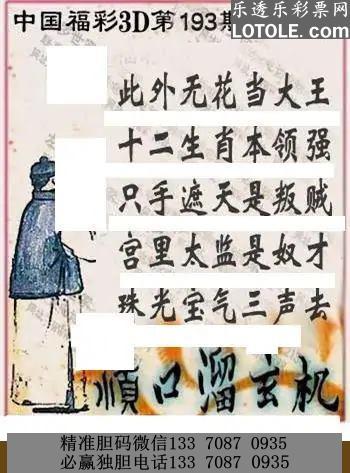 乐透乐彩票网
LOTOLE.COM
中国福彩3D第193期
此外无花当大王
十二生肖本领强
只手遮天是叛贼
宫里太监是奴才
珠光宝气三声去
顺口溜玄机
精准胆码微信133 7087 0935
必赢独胆电话133 7087 0935